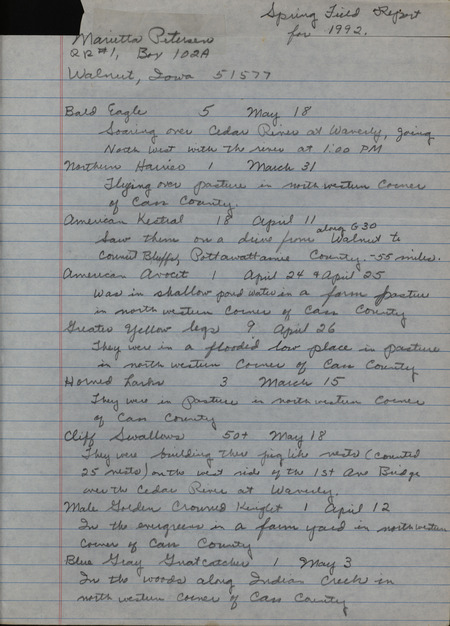 Spring Field Report
for 1992.
Marietta Petersen
RR #1, Box 102A
Walnut, Iowa 51577
Bald Eagle 5 May 18
Soaring over Cedar River at Waverly, going
North West with the river at 1:00 PM
Northern Harrier 1 March 31
Flying over pasture in northwestern corner
of Cass County.
American Kestral 18 April 11
along G30
Saw them on a drive from Walnut to
Council Bluffs, Pottawattamie County. - 55 miles.
American Avocet 1 April 24 & April 25
Was in shallow pond water in a farm pasture
in northwestern corner of Cass County
Greater Yellow legs 9 April 26
They were in a flooded low place in pasture
in northwestern corner of Cass County
Horned Larks 3 March 15
They were in pasture in northwestern corner
of Cass County
Cliff Swallows 50+ May 18
They were building their jug like nests (counted
25 nests) on the west side of the 1st Ave Bridge
over the Cedar River at Waverly.
Male Golden Crowned Kinglet 1 April 12
In the evergreens in a farm yard in northwestern
corner of Cass County
Blue Gray Gnatcatcher 1 May 3
In the woods along Indian Creek in
northwestern corner of Cass County